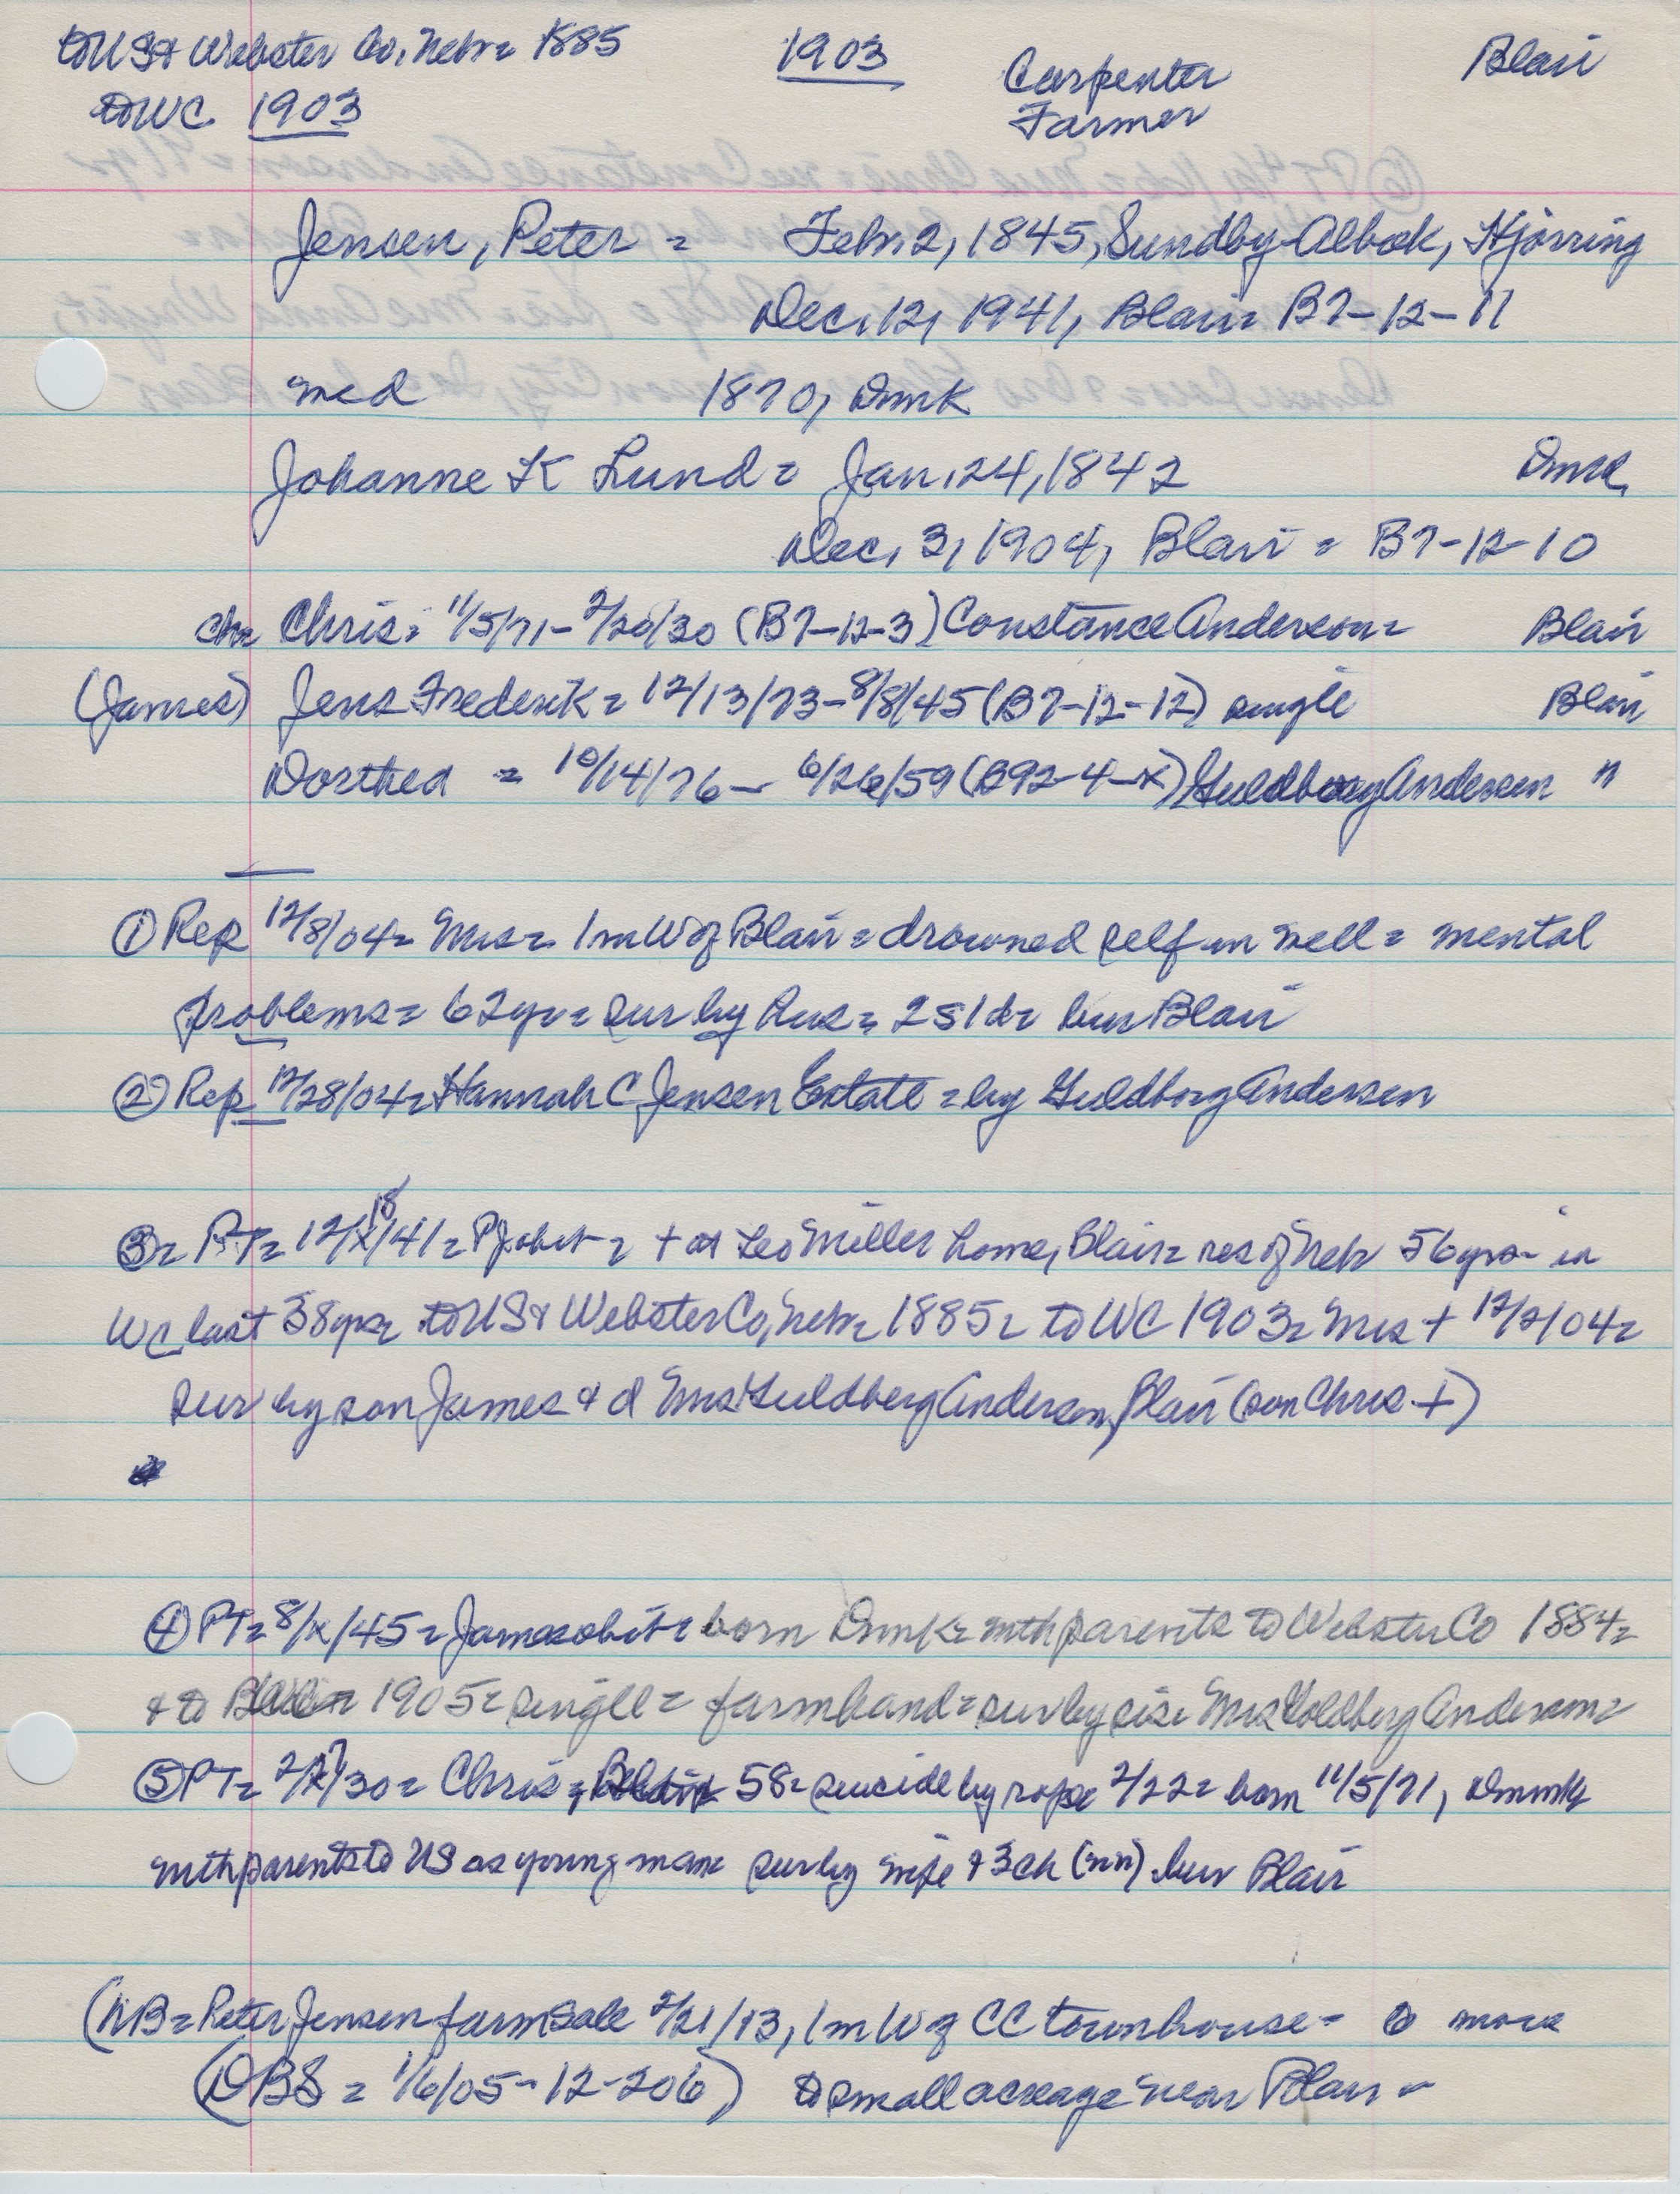 to US & Webster Co, Nebr = 1885 1903 Carpenter Blair
to WC 1903 Farmer
Jensen, Peter = Feb. 2, 1845, Sundby-Albæk, Hjørring
Dec. 12, 1941, Blair = B7-12-11
med 1870, Dmk
Johanne K Lund = Jan. 24, 1842 Dmk
Dec. 3, 1904, Blair = B7-12-10
ch= Chris = 11/5/71 - 2/20/30 (B7-12-3) Constance Anderson = Blair
(James) Jens Frederik = 12/13/73 - 8/8/45 (B7-12-12) single Blair
Dorthea = 10/14/76 - 6/26/59 (B92-4-x) Guldborg Andersen "
① Rep 12/8/04 = Mrs = 1 m W of Blair = drowned self in well = mental
problems = 62 yr = sur by hus = 2 s 1 d = bur Blair
② Rep 12/28/04 = Hannah C Jensen Estate = by Guldborg Andersen
18
③ = PT = 12/x/41 = P J obit = + at Leo Miller home, Blair = res of Neb 56 yrs - in
WC last 38 yrs = to US & Webster Co, Nebr = 1885 = to WC 1903 = Mrs + 12/2/04 =
sur by son James & d Mrs Guldberg Anderson, Blair (son Chris +)
④ PT = 8/x/45 = James obit = born Dmk = with parents to Webster Co 1884 =
& to 1905 = single = farmhand = sur by sis = Mrs Goldberg Anderson =
⑤ PT = 2/27/30 = Chris = 58 = suicide by rope 2/22 = born 11/5/71, Dmmk
with parents to US as young man sur by wife & 3 ch (nn) bur Blair
(NB = Peter Jensen farm sale 2/21/13, 1 m W of CC townhouse = to move
(DBS = 1/6/05 - 12-206) to small acreage near Blair -